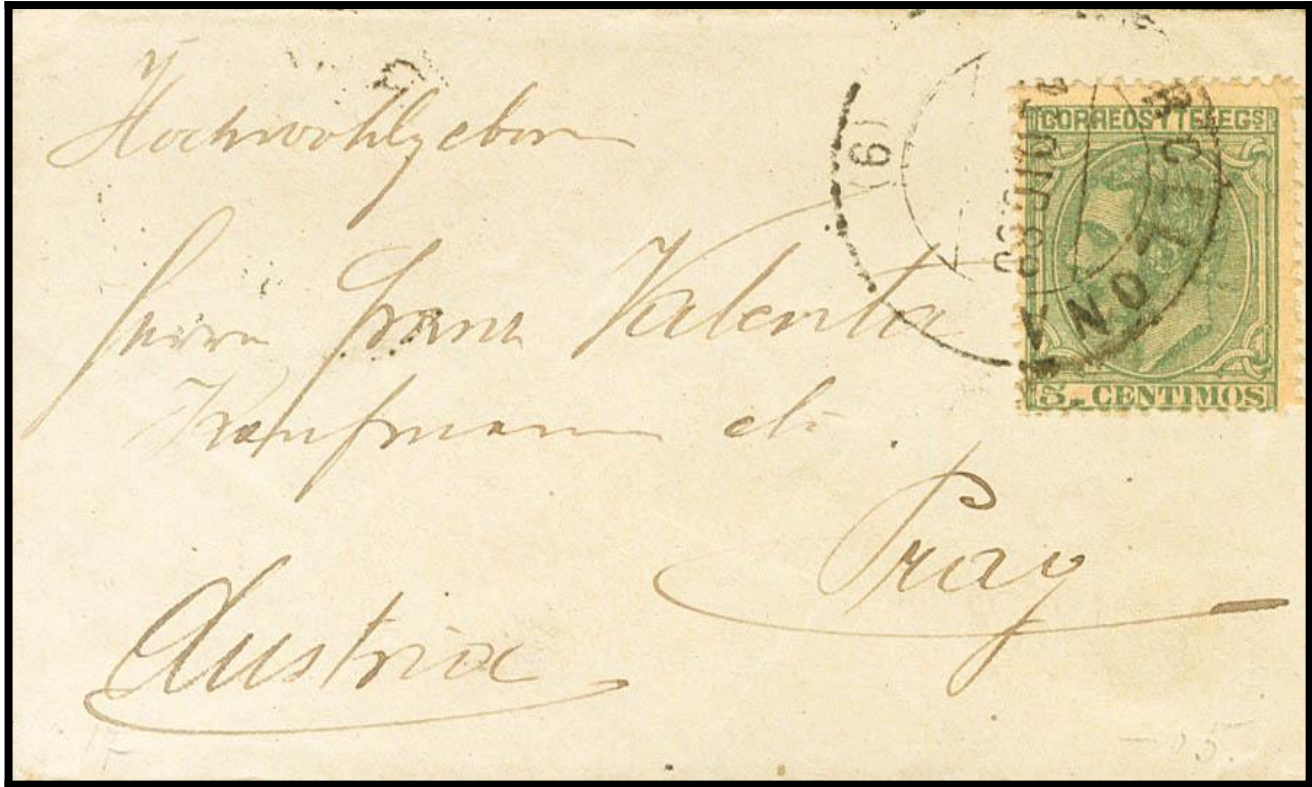 Hochwohlgeboren
Herrn Franz Valenta
Kaufmann etc
Prag
Austria
CORREOS Y TELEGS
5 CENTIMOS
BARCELONA
(6)